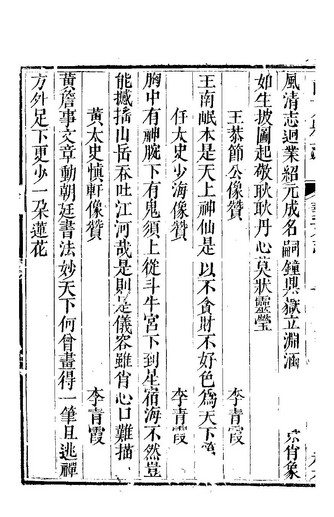 風清志逈業紹元成名嗣鐘鼎嶽立淵涵 肖象
如生披圖起敬耿耿丹心莫狀靈瑩
王恭節公像贊 李青霞
王南岷本是天上神仙是以不貪財不好色為天下
任太史少海像贊 李青霞
胸中有神腕下有鬼須上從斗牛宮下到星宿海不然豈
能撼搖山岳吞吐江河哉是則是儀容雖肖心口難描
黃太史慎軒像贊 李青霞
黃詹事文章動朝廷書法妙天下何曾畫得一筆且逃禪
方外足下更少一朶蓮花